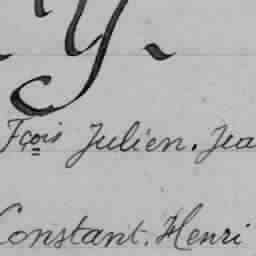 Y.
Fçois Julien. Jea
Constant. Henri